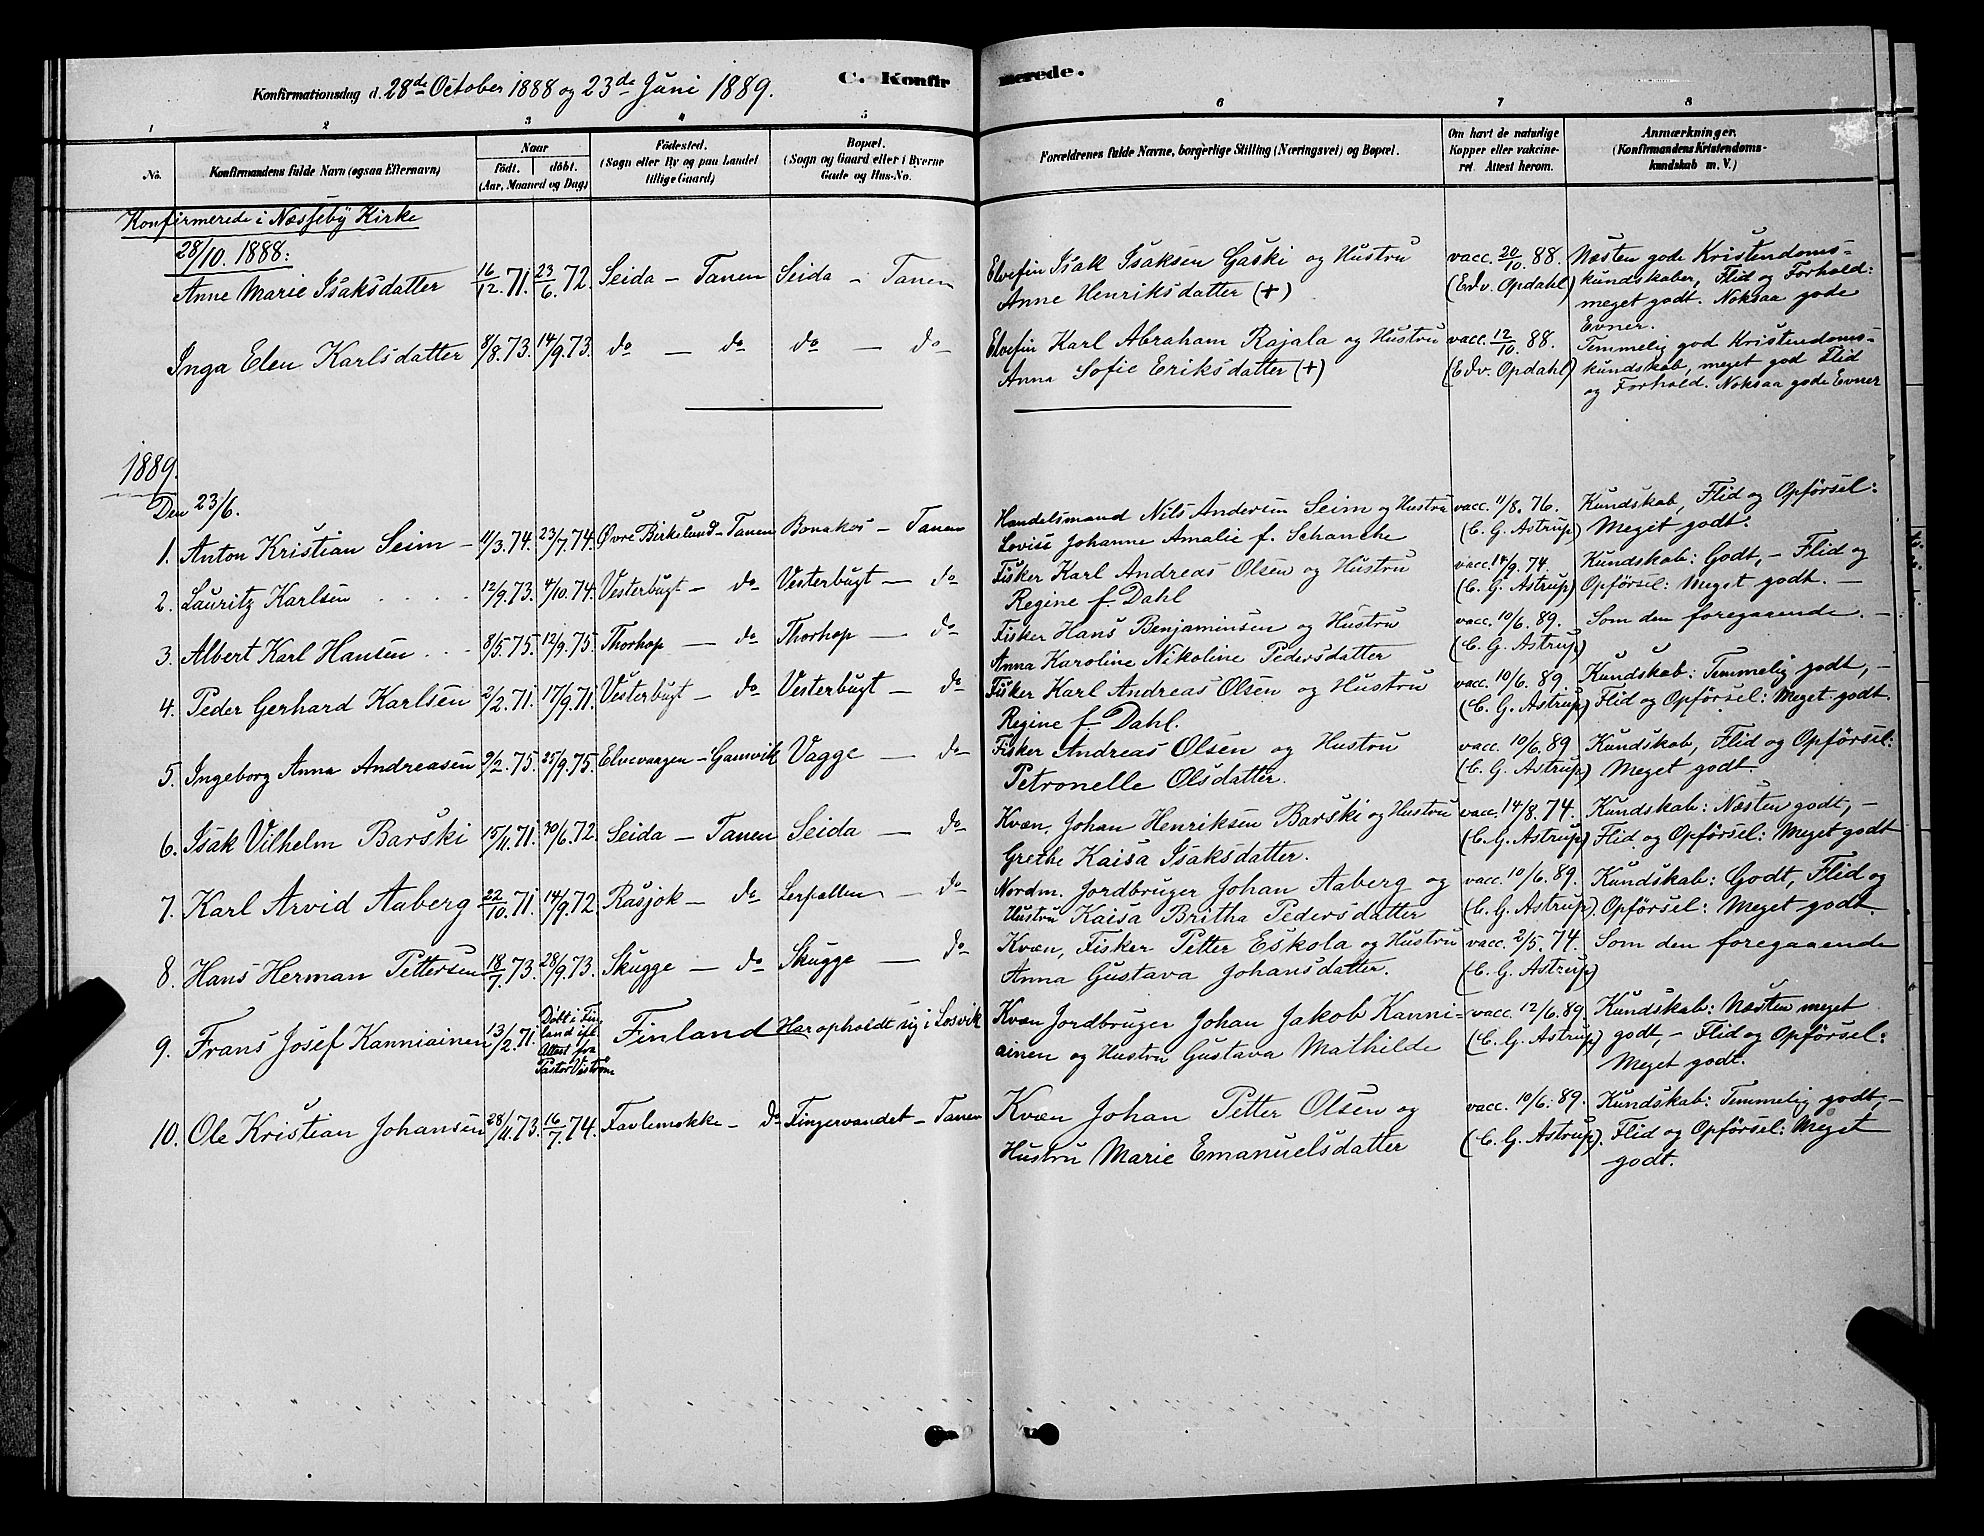 Konfirmationsdag d. 28de October 1888 og 23de Juni 1889.
C. Konfirmerede.
1 2 3 4 5 6 7 8
No.
Konfirmandens fulde Navn (ogsaa Efternavn)
Naar
født. døbt.
(Aar, Maaned og Dag)
Fødested.
(Sogn eller By og paa Landet
tillige Gaard)
Bopæl.
(Sogn og Gaard eller i Byerne
Gade og Hus-No.
Forældrenes fulde Navne, borgerlige Stilling (Næringsvei) og Bopæl.
Om havt de naturlige
Kopper eller vakcine-
ret Attest herom.
Anmærkninger.
(Konfirmandens Kristendoms-
kundskab m. V.)
Konfirmerede i Næsseby Kirke
28/10. 1888:
Anne Marie Isaksdatter 16/12. 71. 23/6. 72. Seida - Tanen Seida - Tanen
Elvefin Isak Isaksen Gaski og Hustru
Anne Henriksdatter (+)
vacc. 20/10. 88.
(Edv. Opdahl)
Næsten gode Kristendoms-
kundskaber, Flid og Forhold:
meget godt. Noksaa gode
Evner.
Inga Elen Karlsdatter 8/8. 73. 14/9. 73. do - do do - do
Elvefin Karl Abraham Rajala og Hustru
Anna Sofie Eriksdatter (+)
vacc. 12/10. 88.
(Edv. Opdahl)
Temmelig god Kristendoms-
kundskab, meget god Flid
og Forhold. Noksaa gode Evner
1889.
Den 23/6.
1. Anton Kristian Seim - 11/3. 74. 23/7. 74. Øvre Birkelund - Tanen Bonakas - Tanen
Handelsmand Nils Andersen Seim og Hustru
Lovise Johanne Amalie f. Schanche
vacc. 11/8. 76.
(C. G. Astrup)
Kundskab, Flid og Opførsel:
Meget godt.
2. Lauritz Karlsen 12/9. 73. 4/10. 74. Vesterbugt - do Vesterbugt - do
Fisker Karl Andreas Olsen og Hustru
Regine f. Dahl
vacc. 14/9. 74.
(C. G. Astrup)
Kundskab: Godt, - Flid og
Opførsel: Meget godt. -
3. Albert Karl Hansen 8/5. 75. 12/9. 75. Thorhop - do Thorhop - do
Fisker Hans Benjaminsen og Hustru
Anna Karoline Nikoline Pedersdatter
vacc. 10/6. 89.
(C. G. Astrup)
Som den foregaaende. -
4. Peder Gerhard Karlsen 2/2. 71. 17/9. 71. Vesterbugt - do Vesterbugt - do
Fisker Karl Andreas Olsen og Hustru
Regine f. Dahl.
vacc. 10/6. 89
(C. G. Astrup)
Kundskab: Temmelig godt, -
Flid og Opførsel: Meget godt.
5. Ingeborg Anna Andreasen 9/2. 75. 25/9. 75. Elvevaagen - Gamvik Vagge - do
Fisker Andreas Olsen og Hustru
Petronelle Olsdatter.
vacc. 10/6. 89
(C. G. Astrup)
Kundskab, Flid og Opførsel:
Meget godt.
6. Isak Vilhelm Barski 15/11. 71. 30/6. 72. Seida - Tanen Seida - do
Kvæn, Johan Henriksen Barski og Hustru
Grethe Kaisa Isaksdatter.
vacc. 14/8. 74.
(C. G. Astrup)
Kundskab: Næsten godt, -
Flid og Opførsel: Meget godt
7. Karl Arvid Aaberg 22/10. 71. 14/9. 72. Rasjok - do Lerpollen - do
Nordm. Jordbruger Johan Aaberg og
Hustru Kaisa Britha Pedersdatter
vacc. 10/6. 89.
(C. G. Astrup).
Kundskab: Godt, Flid og
Opførsel: Meget godt.
8. Hans Herman Pettersen 18/7. 73. 28/9. 73. Skugge - do Skugge - do
Kvæn, Fisker Petter Eskola og Hustru
Anna Gustava Johansdatter.
vacc. 2/5. 74.
(C. G. Astrup)
Som den foregaaende
9. Frans Josef Kanniainen 13/2. 71. Døbt i Fin
land iflt.
Attest fra
Pastor
Finland Har opholdt sig i Losvik
Kvæn Jordbruger Johan Jakob Kanni-
ainen og Hustru Gustava Mathilde
vacc. 12/6. 89.
(C. G. Astrup)
Kundskab: Næsten meget
godt, - Flid og Opførsel:
Meget godt.
10. Ole Kristian Johansen 28/11. 73. 16/7. 74. Favlemokke - do Fingervandet - Tanen
Kvæn Johan Petter Olsen og
Hustru Marie Emanuelsdatter
vacc. 10/6. 89.
(C. G. Astrup).
Kundskab: Temmelig godt, -
Flid og Opførsel: Meget
godt.